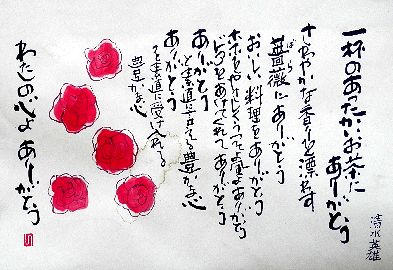 一杯のあったかいお茶に
ありがとう
清水英雄
さわやかな香りを漂わす
薔薇にありがとう
ばら
おいしい料理をありがとう
ホホをやさしくうつ風よありがとう
ドアをあけてくれてありがとう
ありがとう
と素直に言える豊かな心
ありがとう
を素直に受け入れる
豊かな心
わたしの心よ ありがとう